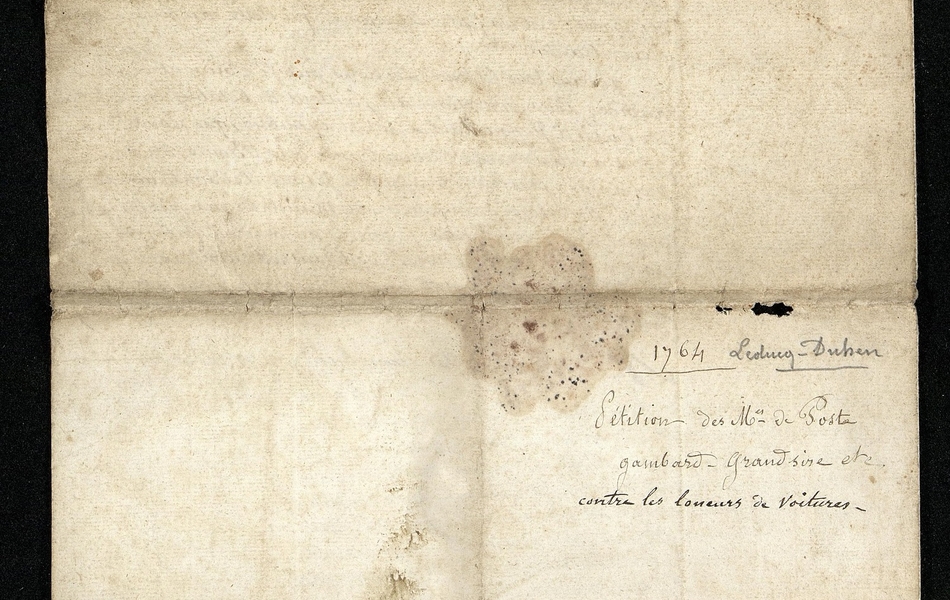 1764 Leducq-Duhen
Pétition des Mes de Poste
gambard- Grandsire etc.
contre les loueurs de voitures-